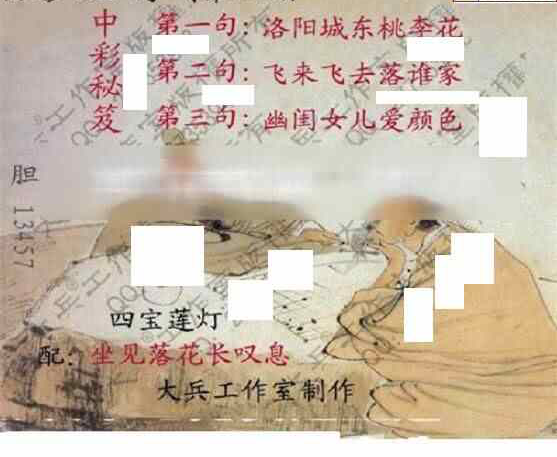 中彩秘笈
第一句:洛阳城东桃李花
第二句:飞来飞去落谁家
第三句:幽闺女儿爱颜色
胆 13457
四宝莲灯
配:坐见落花长叹息
大兵工作室制作